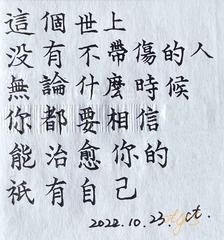 這個世上
没有不帶傷的人
無論什麼時候
你都要相信
能治愈你的
祇有自己
2022.10.23